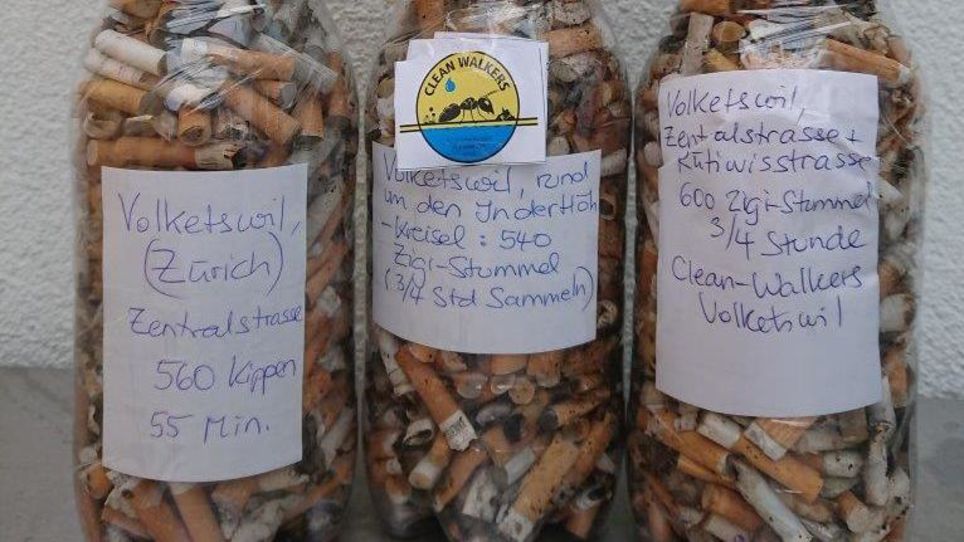 Volketswil,
(Zürich)
Zentralstrasse
560 Kippen
55 Min.
CLEAN WALKERS
Volketswil, rund
um den In der Höh
-Kreisel: 540
Zigi-Stummel
(3/4 Std Sammeln)
Volketswil,
Zentralstrasse +
Kütiwisstrasse
600 Zigi-Stummel
3/4 Stunde
Clean-Walkers
Volketswil